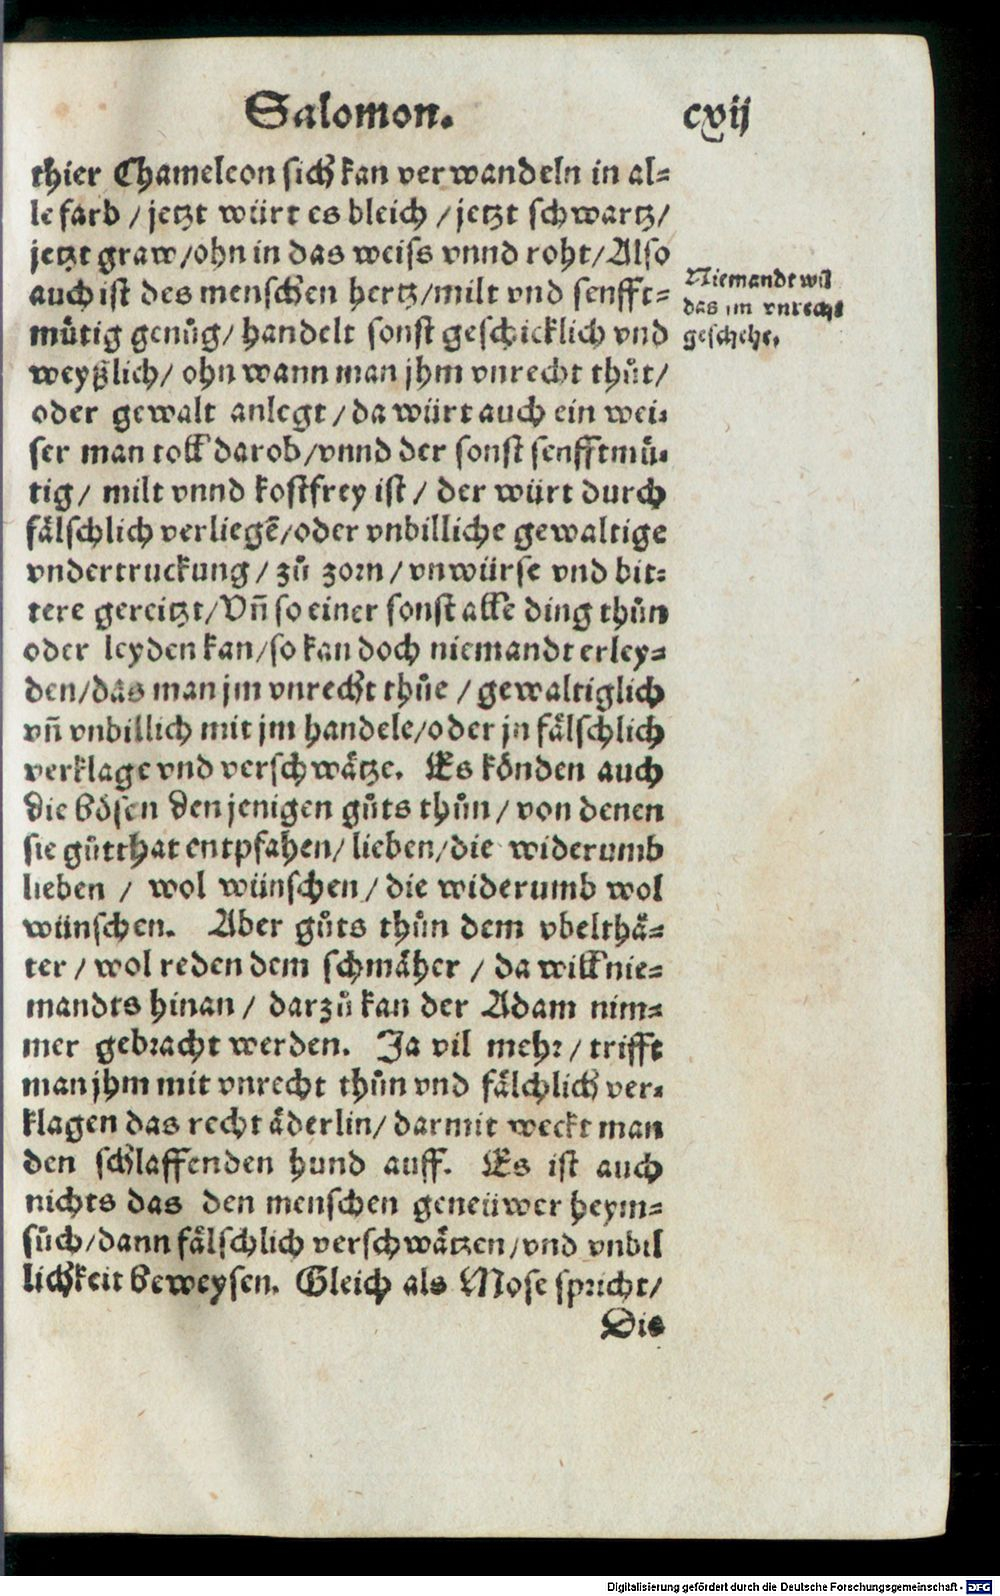 Salomon. cxvij
thier Chameleon sich kan verwandeln in al⸗
le farb / jetzt würt es bleich / jetzt schwartz /
jetzt graw / ohn in das weiss vnnd roht / Also
auch ist des menschen hertz / milt vnd senfft⸗
mütig genůg / handelt sonst geschicklich vnd
weyßlich / ohn wann man jhm vnrecht thůt /
oder gewalt anlegt / da würt auch ein wei⸗
ser man toll darob / vnnd der sonst senfftmü⸗
tig / milt vnnd kostfrey ist / der würt durch
fälschlich verliegē / oder vnbilliche gewaltige
vndertruckung / zů zorn / vnwürse vnd bit⸗
tere gereitzt / Vñ so einer sonst alle ding thůn
oder leyden kan / so kan doch niemandt erley⸗
den / das man jm vnrecht thůe / gewaltiglich
vñ vnbillich mit jm handele / oder jn fälschlich
verklage vnd verschwätze. Es könden auch
die bösen denjenigen gůts thůn / von denen
sie gůtthat entpfahen / lieben / die widerumb
lieben / wol wünschen / die widerumb wol
wünschen. Aber gůts thůn dem vbelthä⸗
ter / wol reden dem schmäher / da will nie⸗
mandts hinan / darzů kan der Adam nim⸗
mer gebracht werden. Ja vil mehr / trifft
man jhm mit vnrecht thůn vnd fälchlich ver⸗
klagen das recht äderlin / darmit weckt man
den schlaffenden hund auff. Es ist auch
nichts das den menschen geneüwer heym⸗
sůch / dann fälschlich verschwätzen / vnd vnbil
lichkeit beweysen. Gleich als Mose spricht /
Dis
Niemandt wil
das im vnrecht
geschehe.
Digitalisierung gefördert durch die Deutsche Forschungsgemeinschaft - DFG